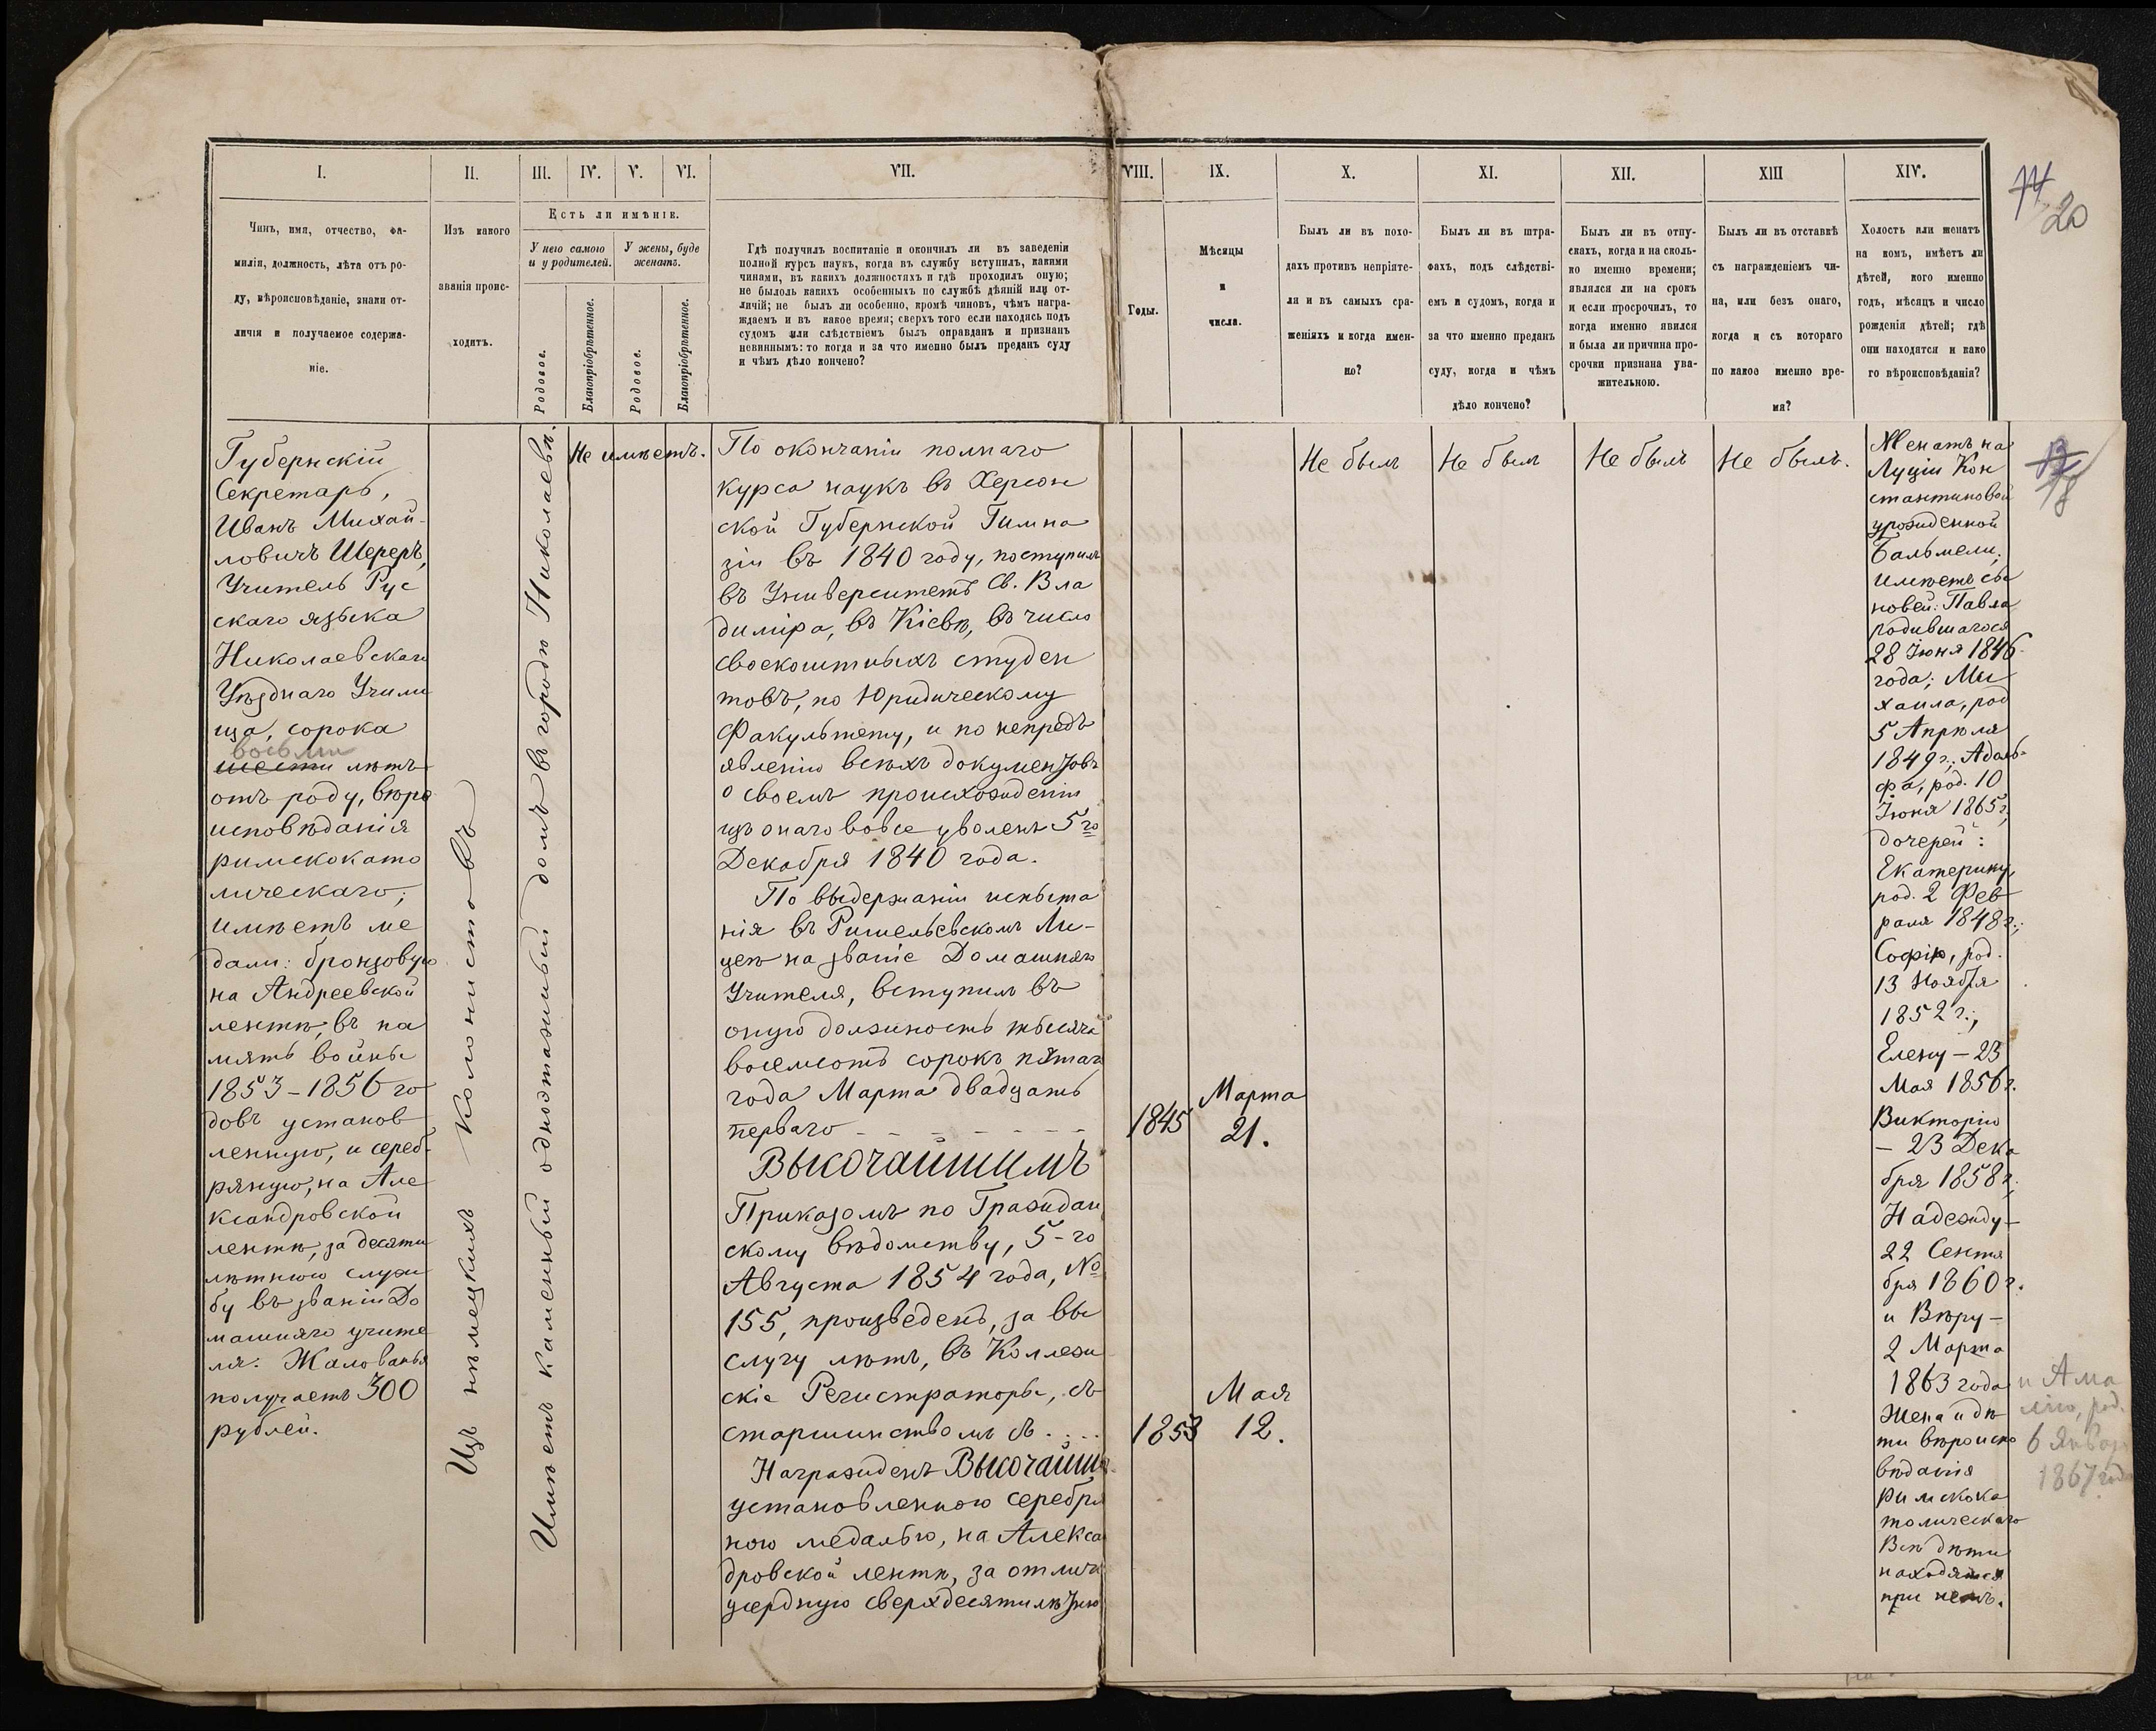 I.
II.
III.
IV.
V.
VI.
VII.
VIII.
IX.
X.
XI.
XII.
XIII
XIV.
Чинъ, имя, отчество, фа-
милія, должность, лѣта отъ ро-
ду, вѣроисповѣданіе, знаки от-
личія и получаемое содержа-
ніе.
Изъ какого
званія проис-
ходитъ.
Есть ли имѣніе.
У него самого
и у родителей.
У жены, буде
женатъ.
Родовое.
Благопріобрѣтенное.
Родовое.
Благопріобрѣтенное.
Гдѣ получилъ воспитаніе и окончилъ ли въ заведеніи
полной курсъ наукъ, когда въ службу вступилъ, какими
чинами, въ какихъ должностяхъ и гдѣ проходилъ оную;
не былоль какихъ особенныхъ по службѣ дѣяній или от-
личій; не былъ ли особенно, кромѣ чиновъ, чѣмъ награ-
ждаемъ и въ какое время; сверхъ того если находясь подъ
судомъ или слѣдствіемъ былъ оправданъ и признанъ
невиннымъ: то когда и за что именно былъ преданъ суду
и чѣмъ дѣло кончено?
Годы.
Мѣсяцы
и
числа.
Былъ ли въ похо-
дахъ противъ непріяте-
ля и въ самыхъ сра-
женіяхъ и когда имен-
но?
Былъ ли въ штра-
фахъ, подъ слѣдстві-
емъ и судомъ, когда и
за что именно преданъ
суду, когда и чѣмъ
дѣло кончено?
Былъ ли въ отпу-
скахъ, когда и на сколь-
ко именно времени;
являлся ли на срокъ
и если просрочилъ, то
когда именно явился
и была ли причина про-
срочки признана ува-
жительною.
Былъ ли въ отставкѣ
съ награжденіемъ чи-
на, или безъ онаго,
когда и съ котораго
по какое именно вре-
мя?
Холость или женатъ
на комъ, имѣетъ ли
дѣтей, кого именно
годъ, мѣсяцъ и число
рожденія дѣтей; гдѣ
они находятся и како
го вѣроисповѣданія?
20
18
Губернскій
Секретарь,
Иванъ Михай-
ловичъ Шереръ,
Учитель Рус
скаго языка
Николаевскаго
Уѣзднаго Учили
ща, сорока
восьми
шести лѣтъ
отъ роду, вѣро
исповѣданія
римскокато
лическаго;
имѣетъ ме
дали: бронзовую
на Андреевской
лентѣ, въ па
мять войны
1853-1856 го
довъ установ
ленную, и сереб-
ряную, на Але
ксандровской
лентѣ, за десяти
лѣтнюю служ
бу въ званіи До
машняго учите
ля. Жалованья
получаетъ 300
рублей.
Изъ нѣмецкихъ колонистовъ
Имѣетъ каменный одноэтажный домъ въ городѣ Николаевѣ.
Не имѣетъ.
По окончаніи полнаго
курса наукъ въ Херсон
ской Губернской Гимна
зіи въ 1840 году, поступилъ
въ Университетъ Св. Вла
диміра, въ Кіевѣ, въ число
своекоштныхъ студен
товъ, по Юридическому
Факультету, и по непредъ
явленію всѣхъ документовъ
о своемъ происхожденіи
изъ онаго вовсе уволенъ 5го
Декабря 1840 года.
По выдержаніи испыта
нія въ Ришельевскомъ Ли-
цеѣ на званіе Домашняго
Учителя, вступилъ въ
оную должность тысяча
восемьсотъ сорокъ пятаго
года Марта двадцать
перваго - - - - - - -
1845
Марта
21.
Высочайшимъ
Приказомъ по Граждан
скому вѣдомству, 5-го
Августа 1854 года, №
155, произведенъ, за вы
слугу лѣтъ, въ Коллеж
скіе Регистраторы, съ
старшинствомъ съ . . . .
1853
Мая
12.
Награжденъ Высочайше
установленною серебря
ною медалью, на Алексан
дровской лентѣ, за отлично
усердную сверхдесятилѣтнюю
Не былъ
Не былъ
Не былъ
Не былъ.
Женатъ на
Луціи Кон
стантиновой
урожденной
Бальмели;
имѣетъ сы
новей: Павла
родившагося
28 Іюня 1846
года; Ми
хаила, род
5 Апрѣля
1849 г.; Адоль-
фа, род. 10
Іюня 1865 г;
дочерей:
Екатерину,
род. 2 Фев
раля 1848 г.;
Софію, род.
13 Ноября
1852 г.;
Елену - 23
Мая 1856 г.
Викторію
- 23 Дека
бря 1858 г;
Надежду -
22 Сентя
бря 1860 г.
и Вѣру -
2 Марта
1863 года
и Ама
лію, род.
6 Января
1867 года
Жена и дѣ
ти вѣроиспо
вѣданія
римскока
толическаго
Всѣ дѣти
находятся
при немъ.